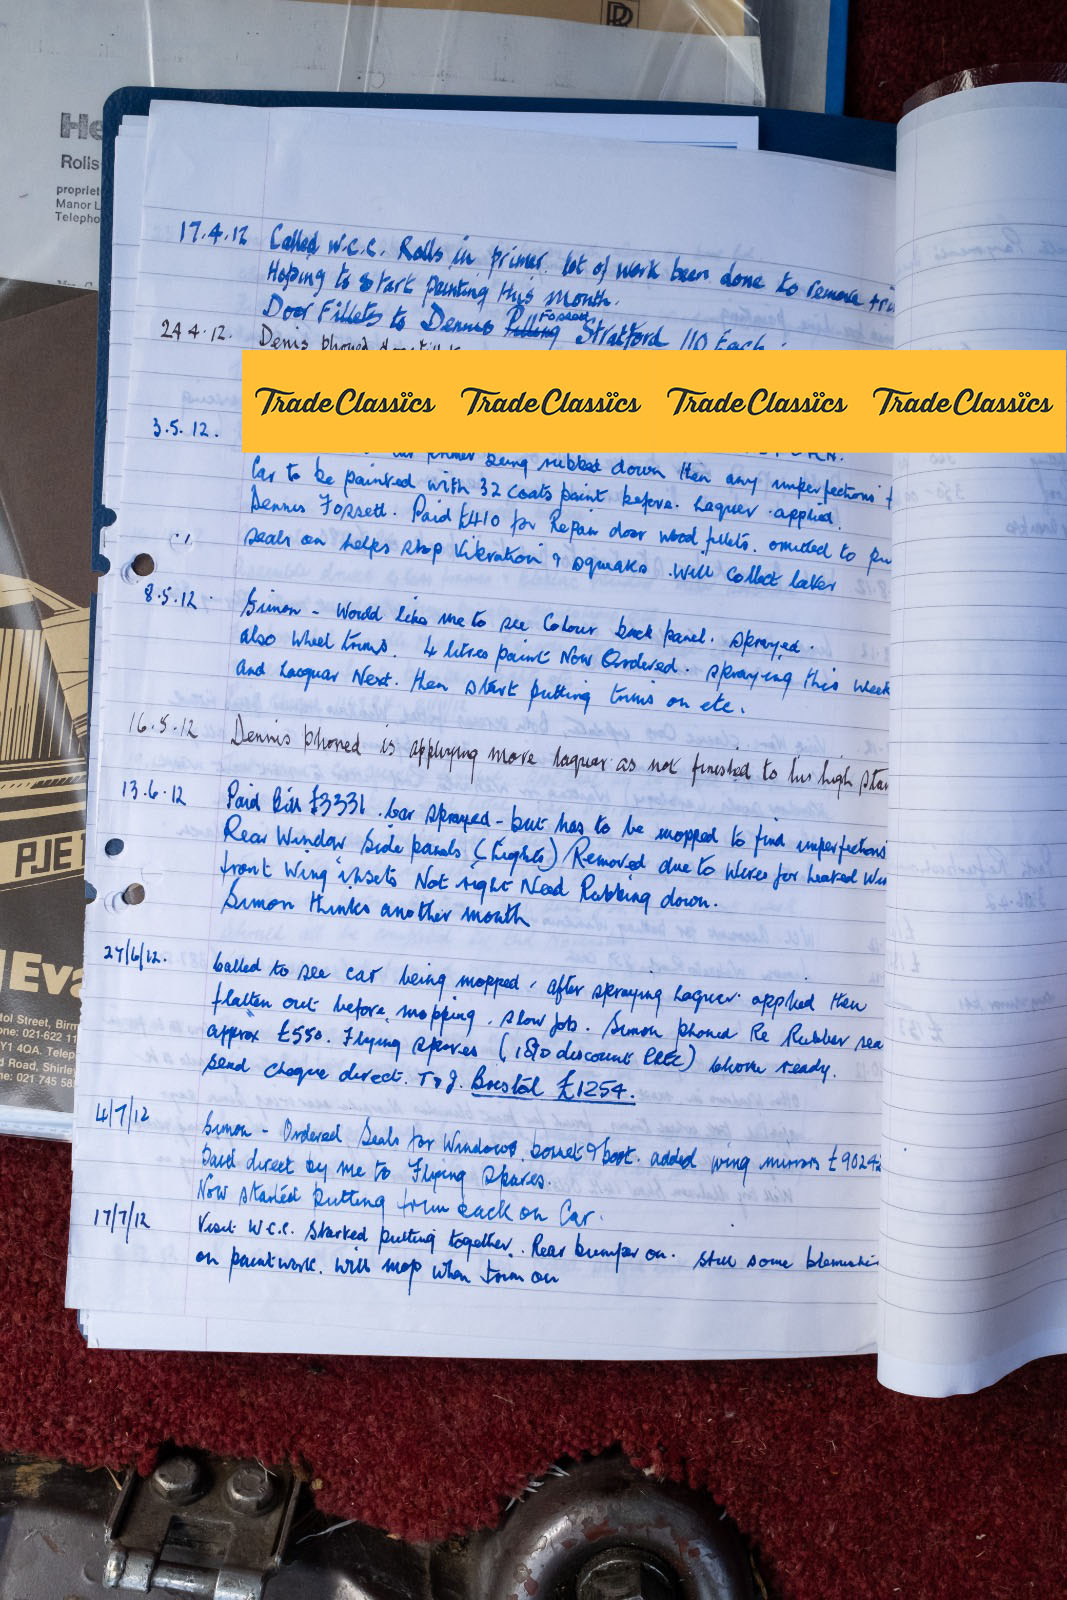 He
Rolls
propriet
Manor L
Telepho
17.4.12 Called W.C.C. Rolls in primer. lot of work been done to remove
Hoping to start painting this month.
Door Fillets to Dennis Fossett Stratford 110 Each.
24.4.12. Denis phoned
TradeClassics TradeClassics TradeClassics TradeClassics
3.5.12.
primer being rubbed down then any imperfections
Car to be painted with 32 coats paint before laquer applied.
Dennis Forsett. Paid £410 for Repair door wood fillets. omitted to
seals on helps stop vibration & squeaks. Will collect later
8.5.12 Simon - Would like me to see Colour back panel. sprayed.
also wheel trims. 4 litres paint Now Ordered. spraying this week
and Laquar Next. then start putting trims on etc.
16.5.12 Dennis phoned is applying more laquer as not finished to his high
13.6.12 Paid Bill £3331. Car sprayed - but has to be mopped to find imperfections
Rear Window Side panels (Lights) Removed due to Wires for heated
front Wing insets Not right Need Rubbing down.
Simon thinks another month
27/6/12. Called to see car being mopped, after spraying Laquer applied then
flatten out before mopping. slow job. Simon phoned Re Rubber
approx £550. Flying spares (discount RREC) when ready.
send cheque direct. Bristol £1254.
4/7/12 Simon - Ordered Seals for Windows, bonnet & boot. added wing mirrors
Paid direct by me to Flying Spares.
Now started putting trim back on Car.
17/7/12 Visit W.C.C. Started putting together. Rear bumper on. Still some
on paintwork. will mop when trim on
PJE 1
Eva
tol Street, Birm
one: 021-622 11
Y1 4QA. Telep
d Road, Shirle
ne: 021 745 58